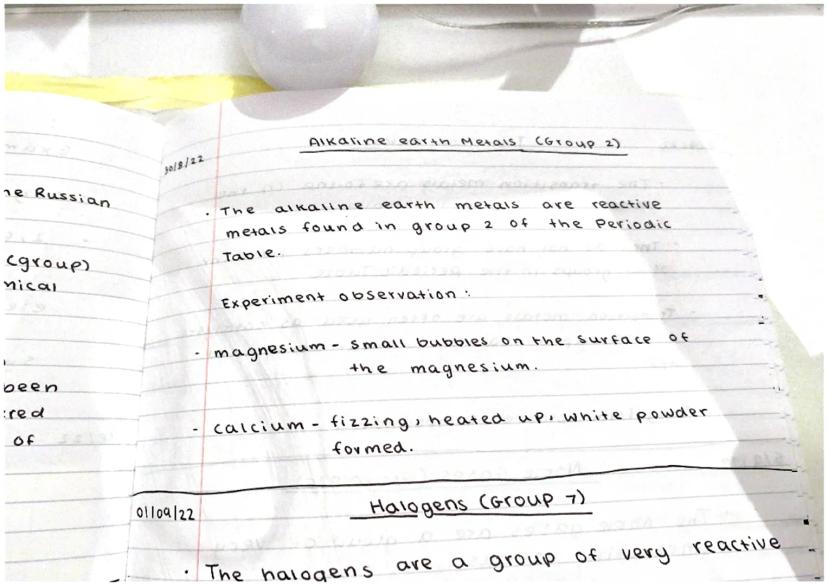 ne Russian
(group)
mical
been
red
of
Alkaline earth Metals (Group 2)
30/8/22
• The alkaline earth metals are reactive
metals found in group 2 of the Periodic
Table.
Experiment observation :
- magnesium - small bubbles on the surface of
the magnesium.
- calcium - fizzing, heated up, white powder
formed.
01/09/22
Halogens (Group 7)
• The halogens are a group of very reactive